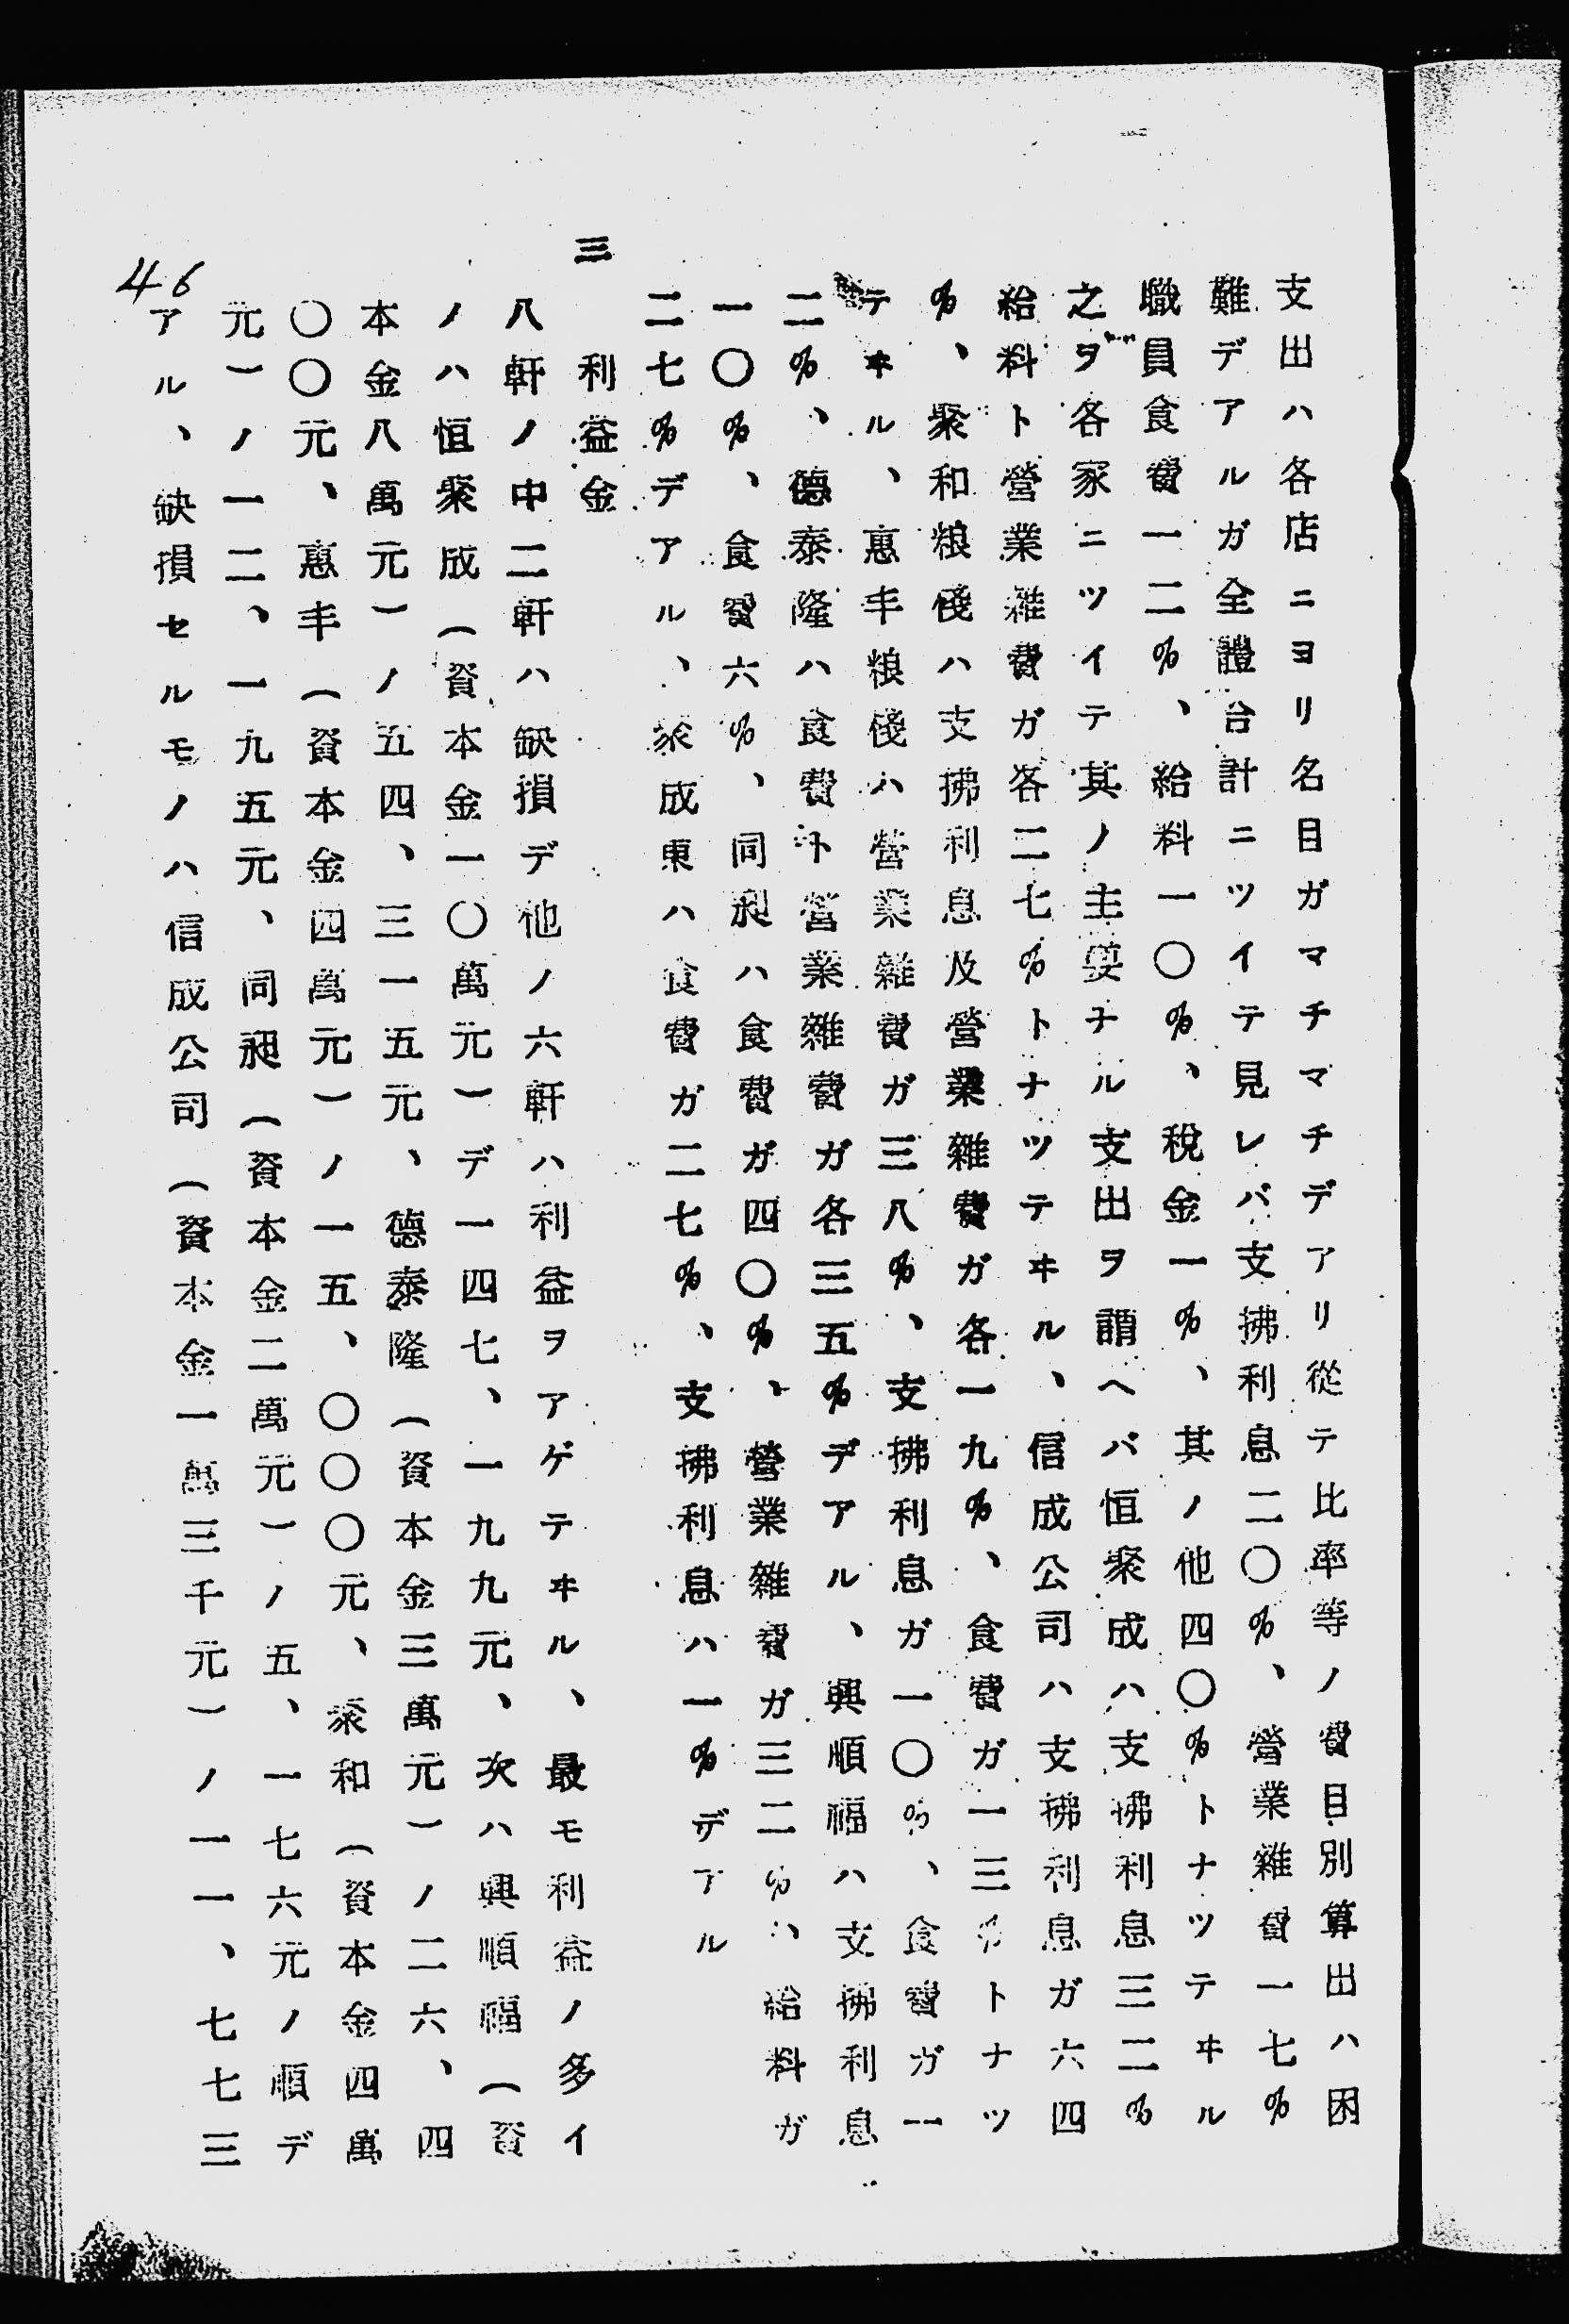 支出ハ各店ニヨリ名目ガマチマチデアリ從テ比率等ノ費目別算出ハ困
難デアルガ全體合計ニツイテ見レバ支拂利息二〇％、營業雜費一七％
職員食費一二％、給料一〇％、税金一％、其ノ他四〇％トナツテヰル
之ヲ各家ニツイテ其ノ主要ナル支出ヲ謂ヘバ恒聚成ハ支拂利息三二％
給料ト營業雜費ガ各二七％トナツテヰル、信成公司ハ支拂利息ガ六四
％、聚和粮棧ハ支拂利息及營業雜費ガ各一九％、食費ガ一三％トナツ
テヰル、惠丰粮棧ハ營業雜費ガ三八％、支拂利息ガ一〇％、食費ガ一
二％、德泰隆ハ食費ト營業雜費ガ各三五％デアル、興順福ハ支拂利息
一〇％、食費六％、同昶ハ食費ガ四〇％、營業雜費ガ三二％、給料ガ
二七％デアル、聚成東ハ食費ガ二七％、支拂利息ハ一％デアル
三　利益金
八軒ノ中二軒ハ缺損デ他ノ六軒ハ利益ヲアゲテヰル、最モ利益ノ多イ
ノハ恒聚成（資本金一〇萬元）デ一四七、一九九元、次ハ興順福（資
本金八萬元）ノ五四、三一五元、德泰隆（資本金三萬元）ノ二六、四
〇〇元、惠丰（資本金四萬元）ノ一五、〇〇〇元、聚和（資本金四萬
元）ノ一二、一九五元、同昶（資本金二萬元）ノ五、一七六元ノ順デ
アル、缺損セルモノハ信成公司（資本金一萬三千元）ノ一一、七七三
46